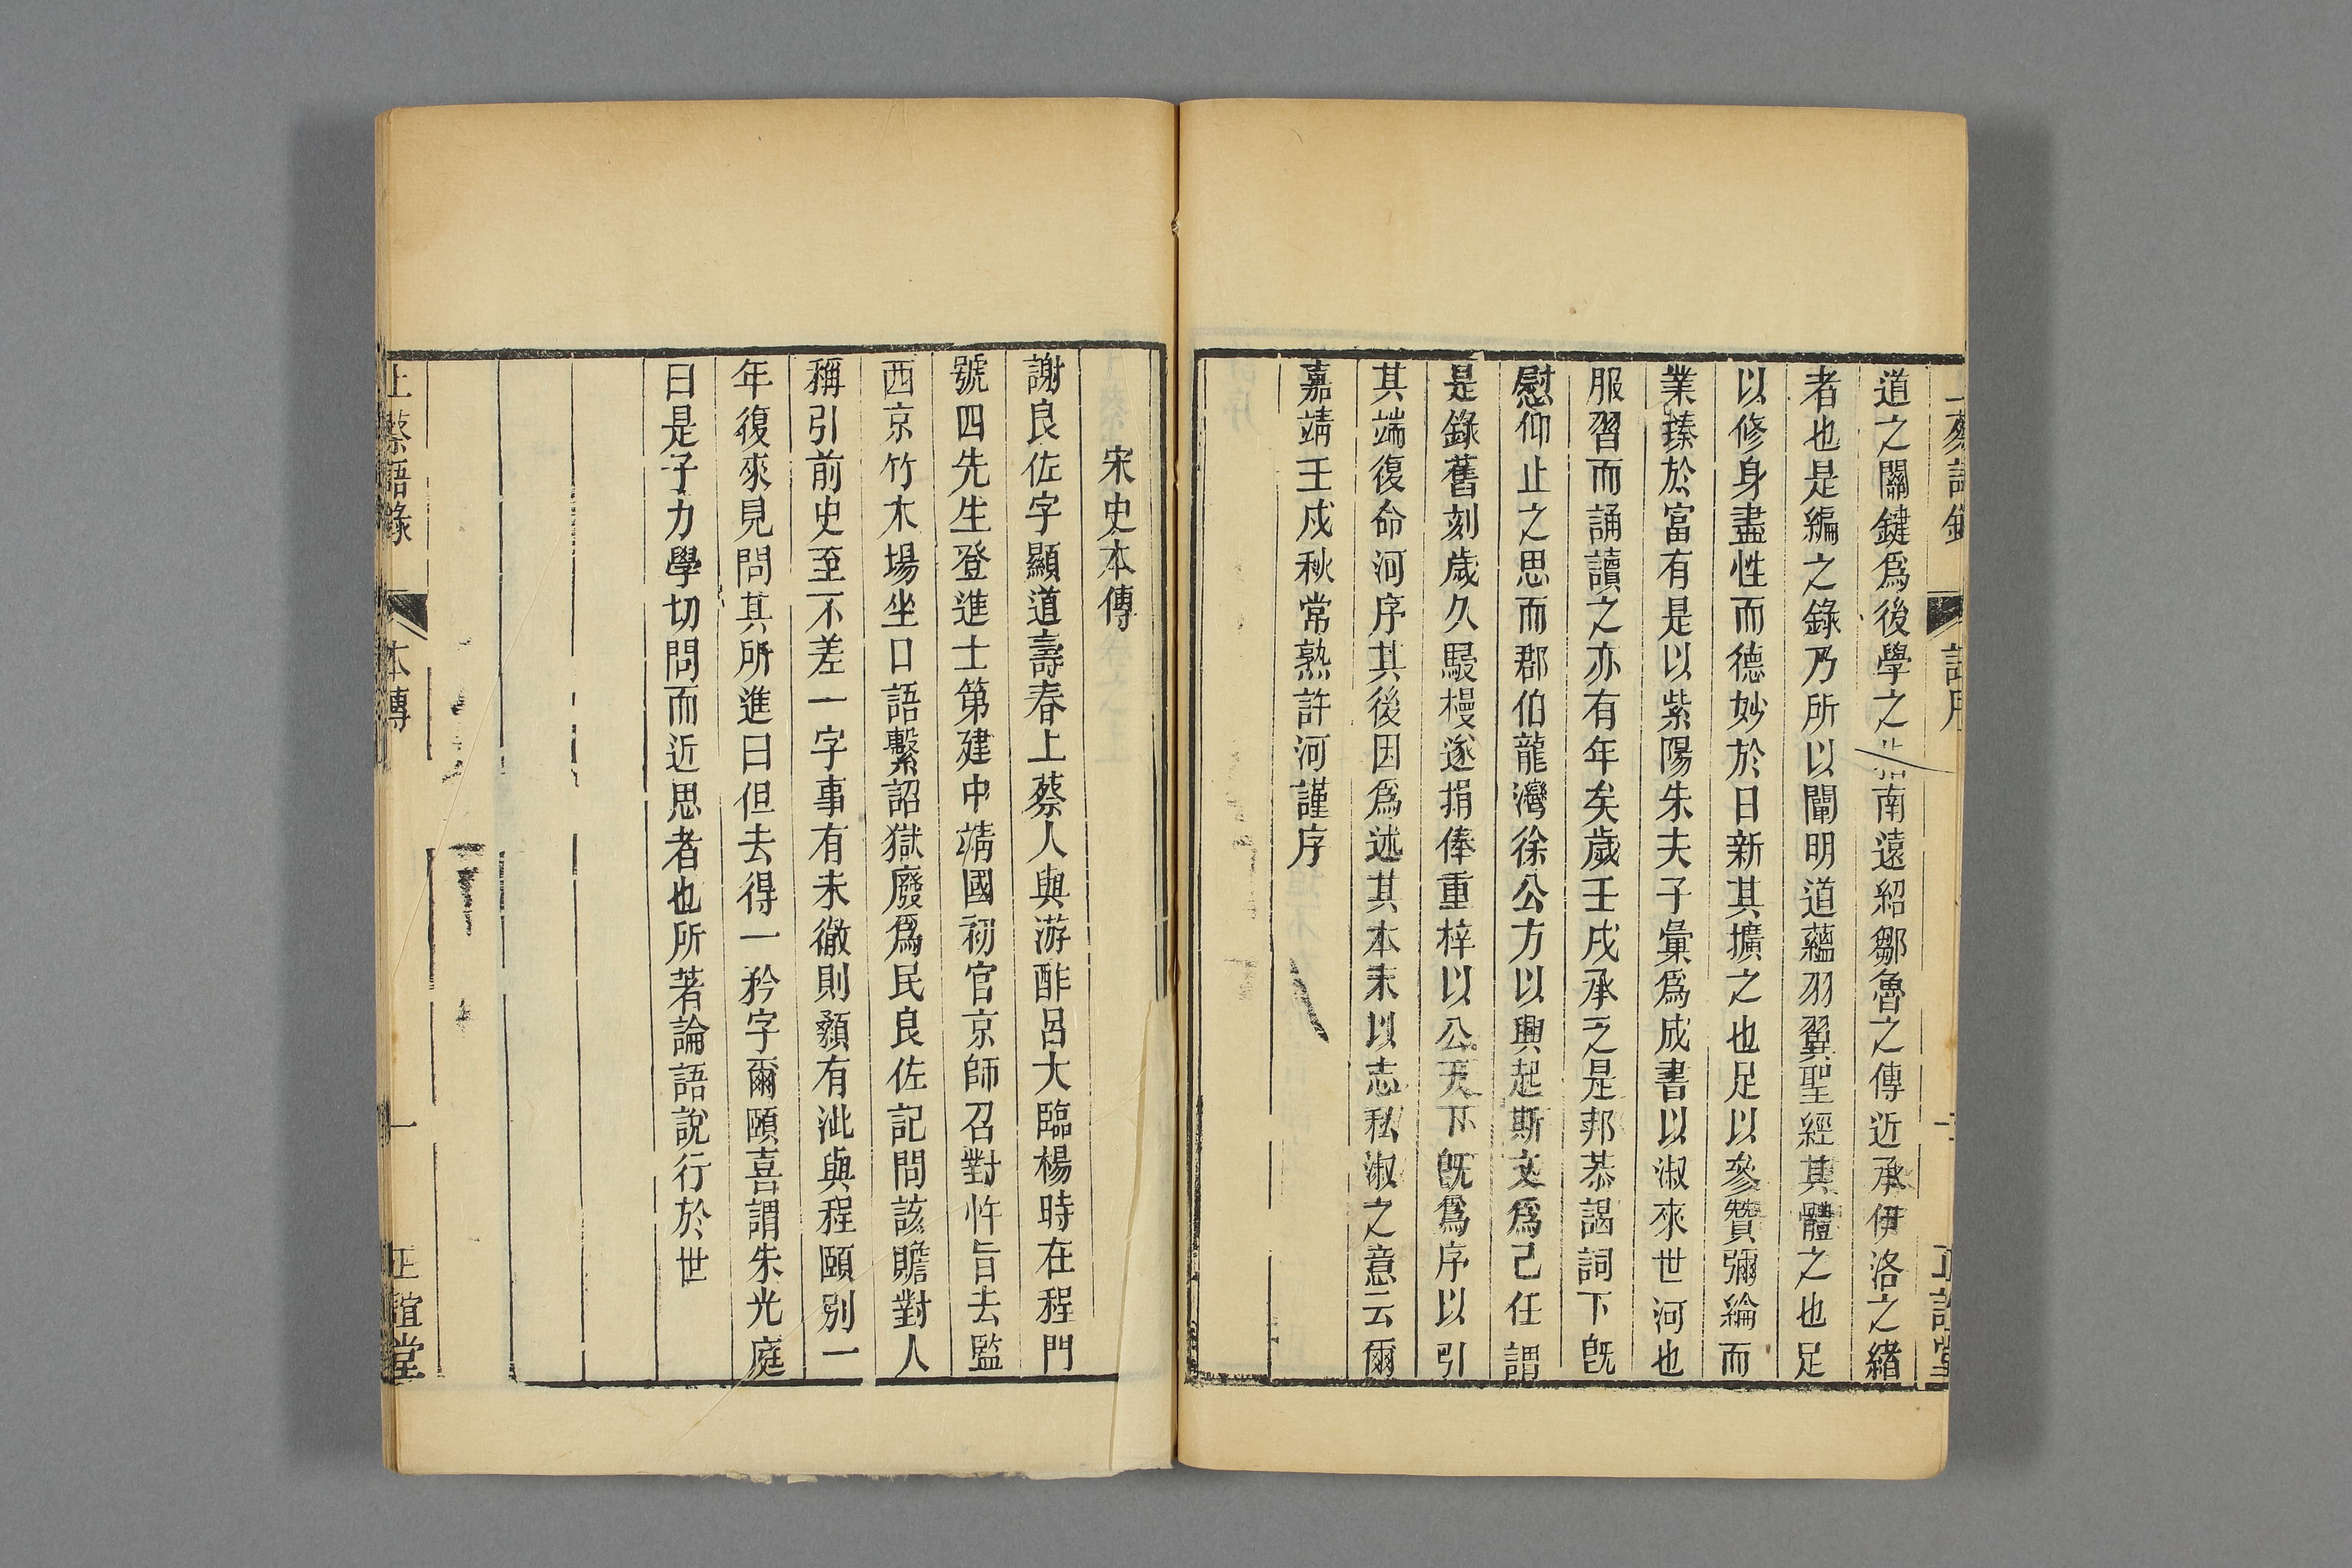 道之關鍵爲後學之指南遠紹鄒魯之傳近承伊洛之緒
者也是編之錄乃所以闡明道蘊羽翼聖經其體之也足
以修身盡性而德妙於日新其擴之也足以參贊彌綸而
業臻於富有是以紫陽朱夫子彙爲成書以淑來世河也
服習而誦讀之亦有年矣歲壬戌承乏是邦恭謁詞下旣
慰仰止之思而郡伯龍灣徐公方以興起斯文爲己任謂
是錄舊刻歲久駸樠遂捐俸重梓以公天下旣爲序以引
其端復命河序其後因爲述其本末以志私淑之意云爾
嘉靖壬戌秋常熟許河謹序
宋史本傳
謝良佐字顯道壽春上蔡人與游酢呂大臨楊時在程門
號四先生登進士第建中靖國初官京師召對忤旨去監
西京竹木場坐口語繫詔獄廢爲民良佐記問該贍對人
稱引前史至不差一字事有未徹則顙有泚與程頤別一
年復來見問其所進曰但去得一矜字爾頤喜謂朱光庭
曰是子力學切問而近思者也所著論語說行於世
上蔡語錄
本傳
一
正誼堂